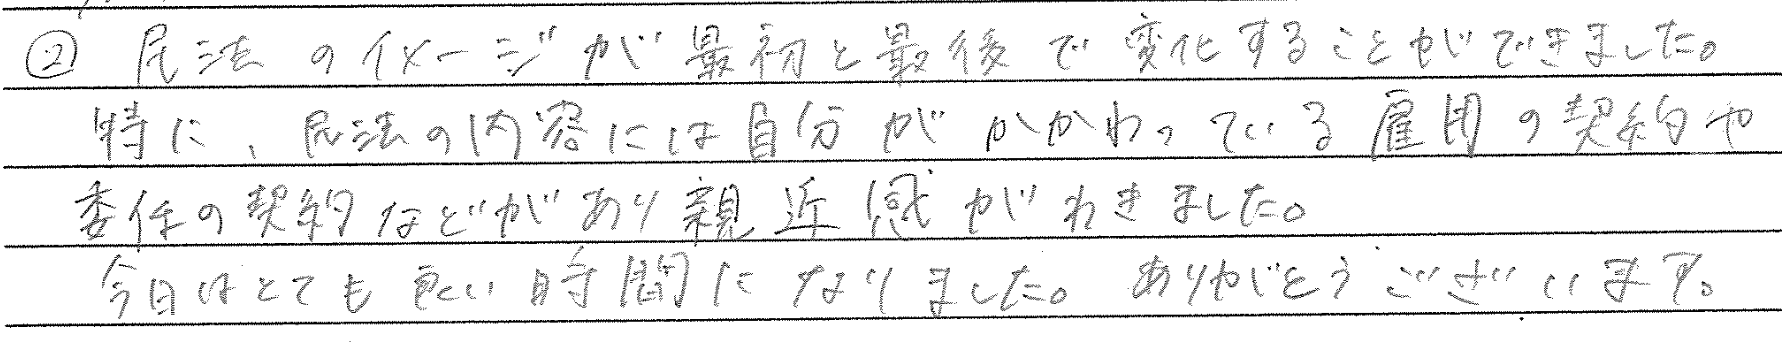 ② 民法のイメージが最初と最後で変化することができました。
特に、民法の内容には自分がかかわっている雇用の契約や
委任の契約などがあり親近感がわきました。
今日はとても良い時間になりました。ありがとうございます。